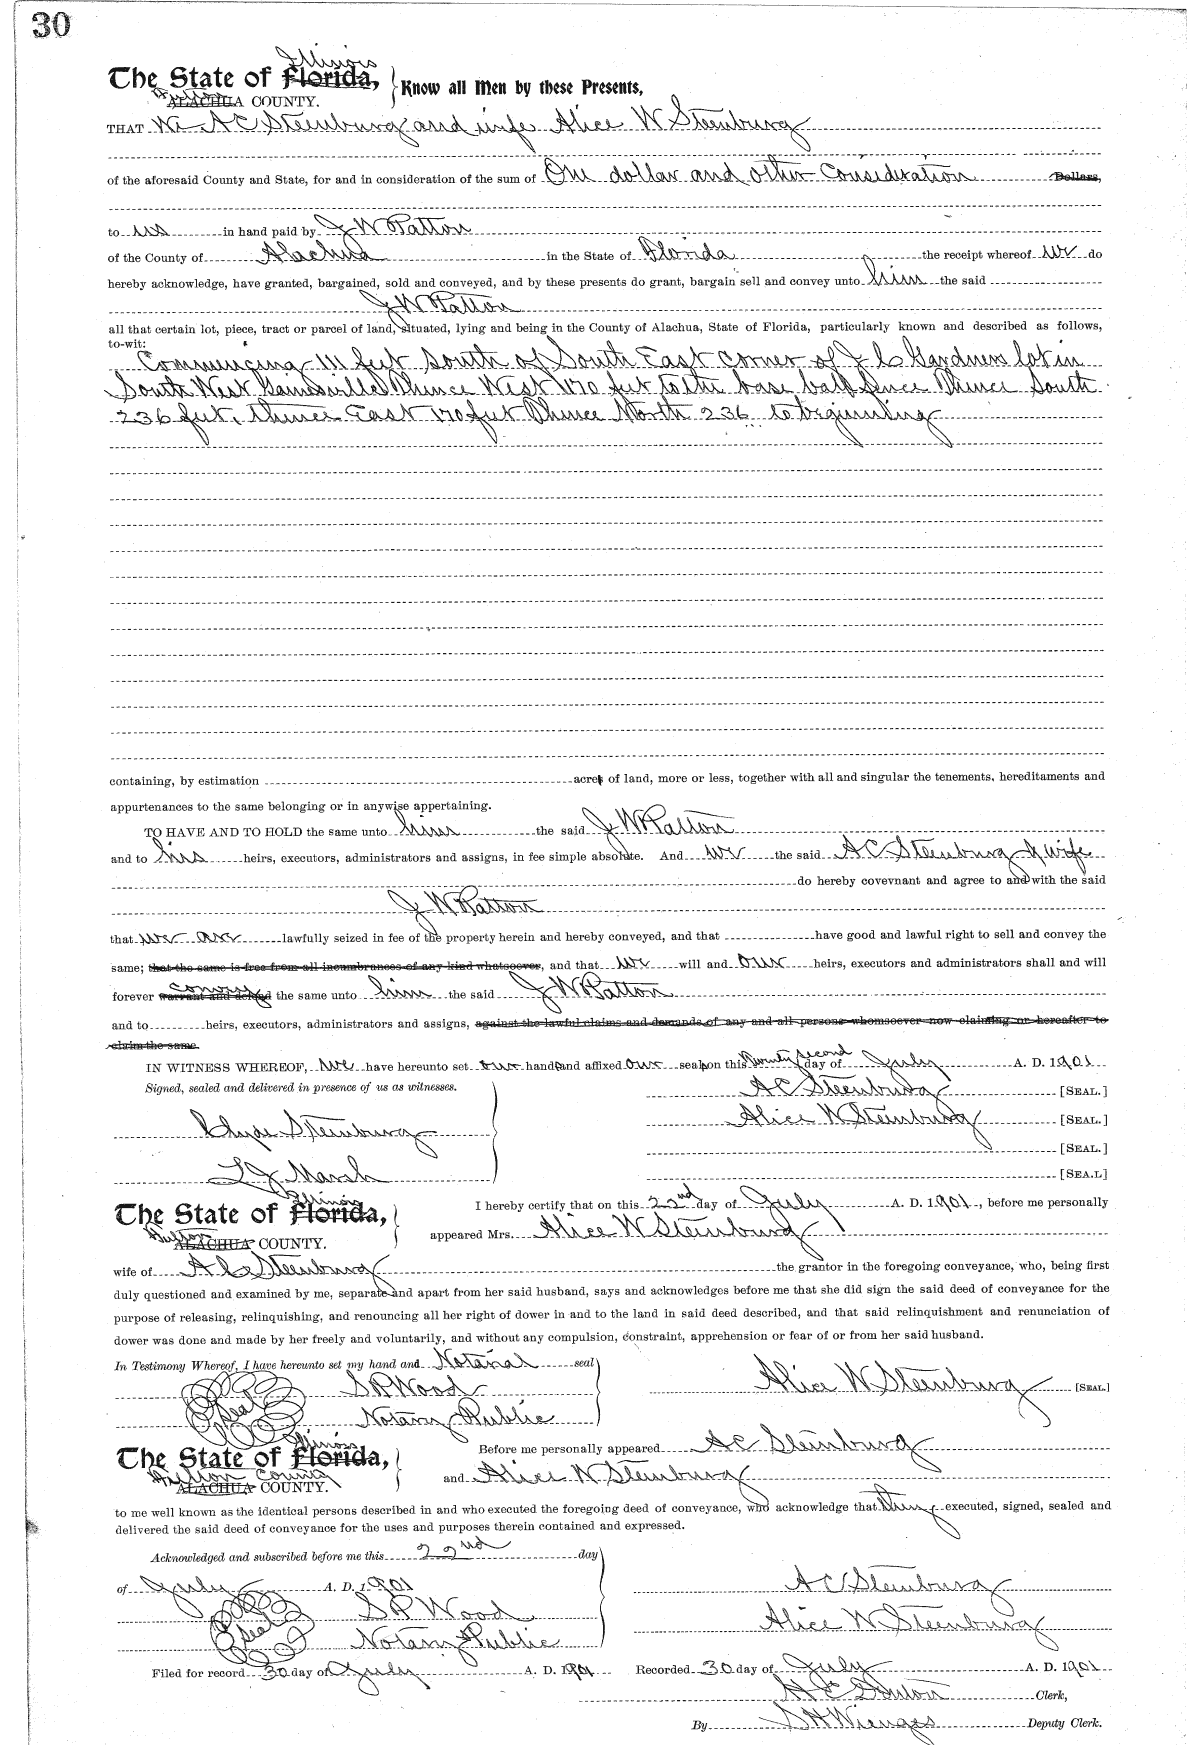 30
The State of Florida, Illinois
ALACHUA COUNTY.
Know all Men by these Presents,
THAT We A C Steenburg and wife Alice W Steenburg
of the aforesaid County and State, for and in consideration of the sum of One dollar and other Consideration Dollars,
to us in hand paid by J W Patton
of the County of Alachua in the State of Florida the receipt whereof we do
hereby acknowledge, have granted, bargained, sold and conveyed, and by these presents do grant, bargain sell and convey unto him the said
J W Patton
all that certain lot, piece, tract or parcel of land, situated, lying and being in the County of Alachua, State of Florida, particularly known and described as follows,
to-wit:
Commencing 111 feet South of South East corner of J C Gardners lot in
South West Gainesville Thence West 170 feet to the base ball fence Thence South
236 feet, thence East 170 feet Thence North 236 to beginning
containing, by estimation acres of land, more or less, together with all and singular the tenements, hereditaments and
appurtenances to the same belonging or in anywise appertaining.
TO HAVE AND TO HOLD the same unto him the said J W Patton
and to his heirs, executors, administrators and assigns, in fee simple absolute. And we the said A C Steenburg & wife
do hereby covevnant and agree to and with the said
J W Patton
that we are lawfully seized in fee of the property herein and hereby conveyed, and that have good and lawful right to sell and convey the
same; that the same is free from all incumbrances of any kind whatsoever, and that we will and our heirs, executors and administrators shall and will
forever warrant and defend convey the same unto him the said J W Patton
and to heirs, executors, administrators and assigns, against the lawful claims and demands of any and all persons whomsoever now claiming or hereafter to
claim the same.
IN WITNESS WHEREOF, we have hereunto set our hands and affixed our seals on this Twenty second day of July A. D. 1901
Signed, sealed and delivered in presence of us as witnesses.
A C Steenburg [SEAL.]
Alice W Steenburg [SEAL.]
Clyde Steenburg
[SEAL.]
L J Marsh
[SEAL]
The State of Florida, Illinois
Fulton ALACHUA COUNTY.
I hereby certify that on this 22nd day of July A. D. 1901, before me personally
appeared Mrs. Alice W Steenburg
wife of A C Steenburg the grantor in the foregoing conveyance, who, being first
duly questioned and examined by me, separate and apart from her said husband, says and acknowledges before me that she did sign the said deed of conveyance for the
purpose of releasing, relinquishing, and renouncing all her right of dower in and to the land in said deed described, and that said relinquishment and renunciation of
dower was done and made by her freely and voluntarily, and without any compulsion, constraint, apprehension or fear of or from her said husband.
In Testimony Whereof, I have hereunto set my hand and Notarial seal
Seal S P Wood
Notary Public
Alice W Steenburg [SEAL.]
The State of Florida, Illinois
Fulton County ALACHUA COUNTY.
Before me personally appeared A C Steenburg
and Alice W Steenburg
to me well known as the identical persons described in and who executed the foregoing deed of conveyance, who acknowledge that they executed, signed, sealed and
delivered the said deed of conveyance for the uses and purposes therein contained and expressed.
Acknowledged and subscribed before me this 22nd day
of July A. D. 1901
Seal S P Wood
Notary Public
A C Steenburg
Alice W Steenburg
Filed for record 30 day of July A. D. 1901
Recorded 30 day of July A. D. 1901
H C Denton Clerk,
By S H Wienges Deputy Clerk.